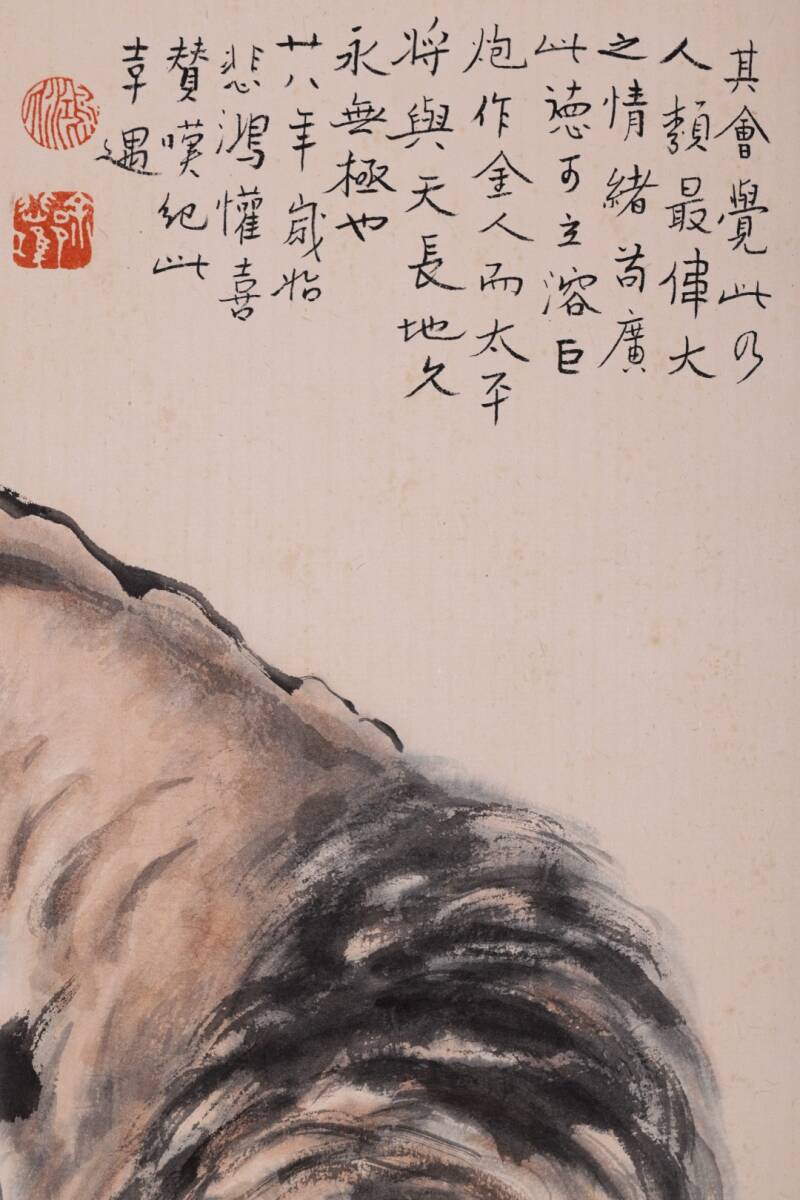 其會覺此乃
人類最偉大
之情緒苟廣
此德可立溶巨
炮作金人而太平
將與天長地久
永無極也
廿八年歲始
悲鴻懽喜
贊嘆紀此
幸遇